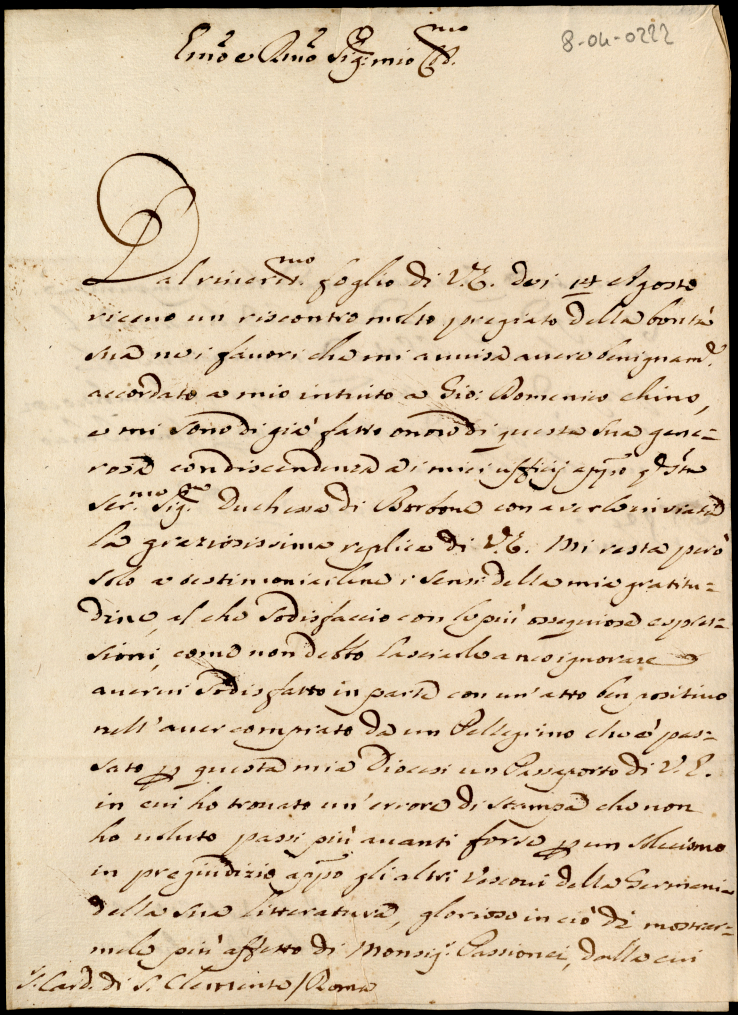 8-04-0222
Em̃o e Rm̃o Sig: mio Oss.mo
Dal riverit.mo foglio di V.E. dei 14 Agosto
ricevo un riscontro molto pregiato della bontà
sua nei favori che mi avvisa avere benignam.e
accordato a mio intuito a Gio: Domenico Chino,
e mi sono di già fatto onore di questa sua gene=
rosa condiscendenza ai miei ufficij app̃o q̃sta
Ser.ma Sig.ra Duchessa di Borbone con averle inviata
la graziosissima replica di V.E. Mi resta però
solo a testimoniarlene i sensi della mia gratitu=
dine, al che sodisfaccio con le più ossequiose espres=
sioni, come non debbo lasciarle anco ignorare
avervi sodisfatto in parte con un' atto ben positivo
nell' aver comprato da un Pellegrino che è pas=
sato p questa mia Diocesi un Passaporto di V.E.
in cui ho trovato un' errore di stampa che non
ho voluto passi più avanti forse p un solecismo
in pregiudizio app̃o gli altri Vescovi della Germania
della sua litteratura, glorioso in ciò di mostrar=
mele più affetto di Monsig.r Passionei, dalla cui
S. Card. di S. Clemente / Roma